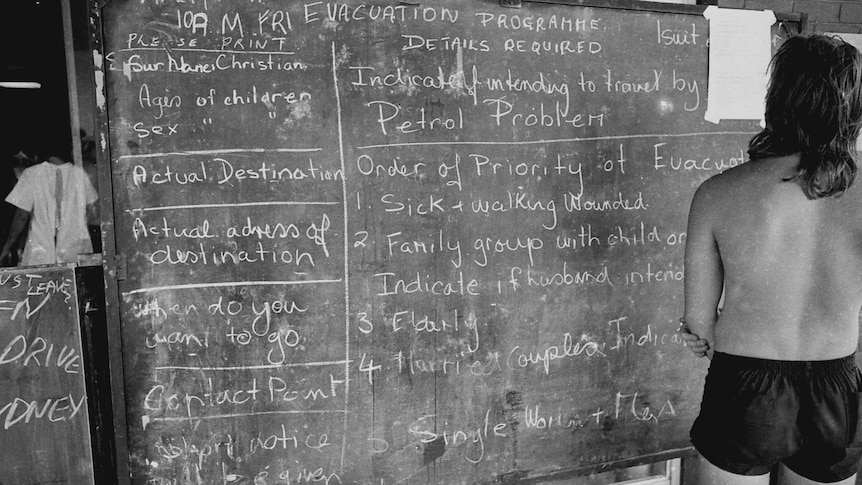 10A.M FRI EVACUATION PROGRAMME
PLEASE PRINT
DETAILS REQUIRED
1suit
Sur Name, Christian
Ages of children
sex " "
Indicate if intending to travel by
Petrol Problem
Actual Destination
Actual adress of
destination
When do you
want to go
Contact Point
notice
be given
Order of Priority of Evacuat
1. Sick + walking Wounded.
2. Family group with child or
Indicate if husband intend
3 Elderly
4. Married Couples, Indica
5. Single Women + Men
LEAVE?
EN
DRIVE
YDNEY